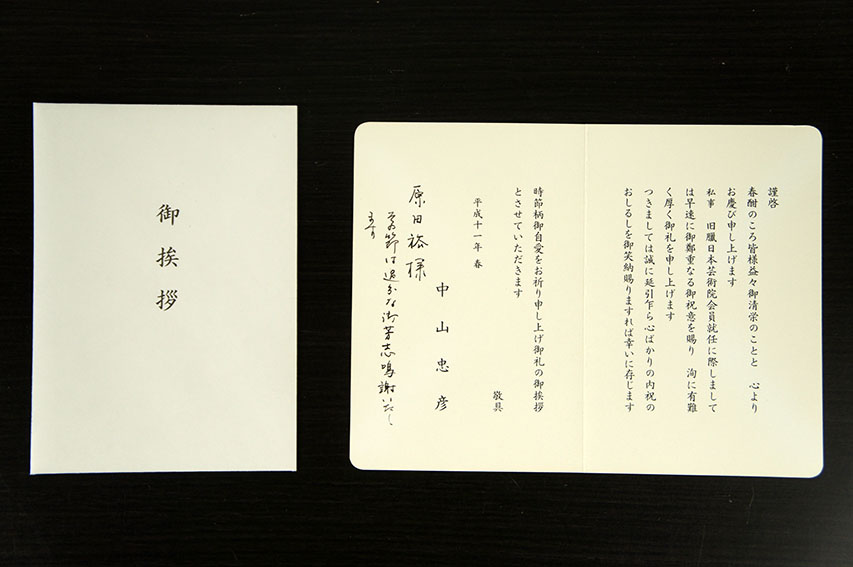 御挨拶
謹啓
春酣のころ皆様益々御清栄のことと　心より
お慶び申し上げます
私事　旧臘日本芸術院会員就任に際しまして
は早速に御鄭重なる御祝意を賜り　洵に有難
く厚く御礼を申し上げます
つきましては誠に延引乍ら心ばかりの内祝の
おしるしを御笑納賜りますれば幸いに存じます
時節柄御自愛をお祈り申し上げ御礼の御挨拶
とさせていただきます
敬具
平成十一年　春
中山忠彦
原田裕様
節は過分な御芳志鳴謝いたし
ます